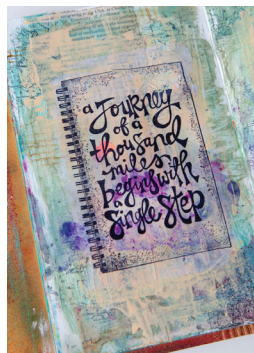 a Journey
of a
thousand
miles
begins with
a single step